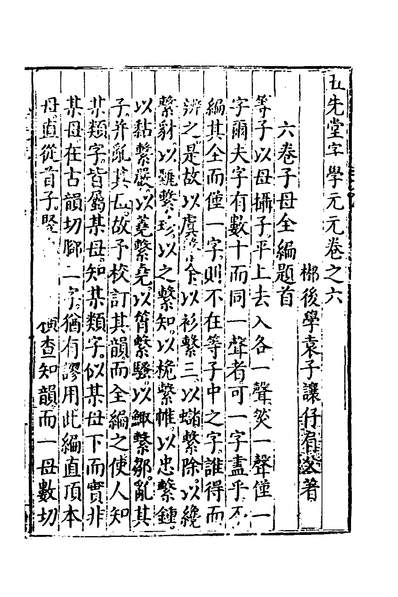 五先堂字學元元卷之六
郴後學袁子讓仔肩父著
六卷子母全編題首
等子以母攝子平上去入各一聲焉一聲僅一
字爾夫字有數十而同一聲者可一字盡乎不
編其全而僅一字則不在等子中之字誰得而
辨之是故以虞 以衫繫三以蟵繫除以纔
繫豺以 繫珍以之繫知以梔繫帷以忠繫鍾
以黏繫嚴以 繫堯以筲繫騷以鯫繫鄒亂其
子并亂其 故予校訂其韻而全編之使人知
某類字皆屬某母知某類字似某母下而實非
某母在古韻切腳二字猶有謬用此編直頂本
母直從首子 查知韻而一母數切